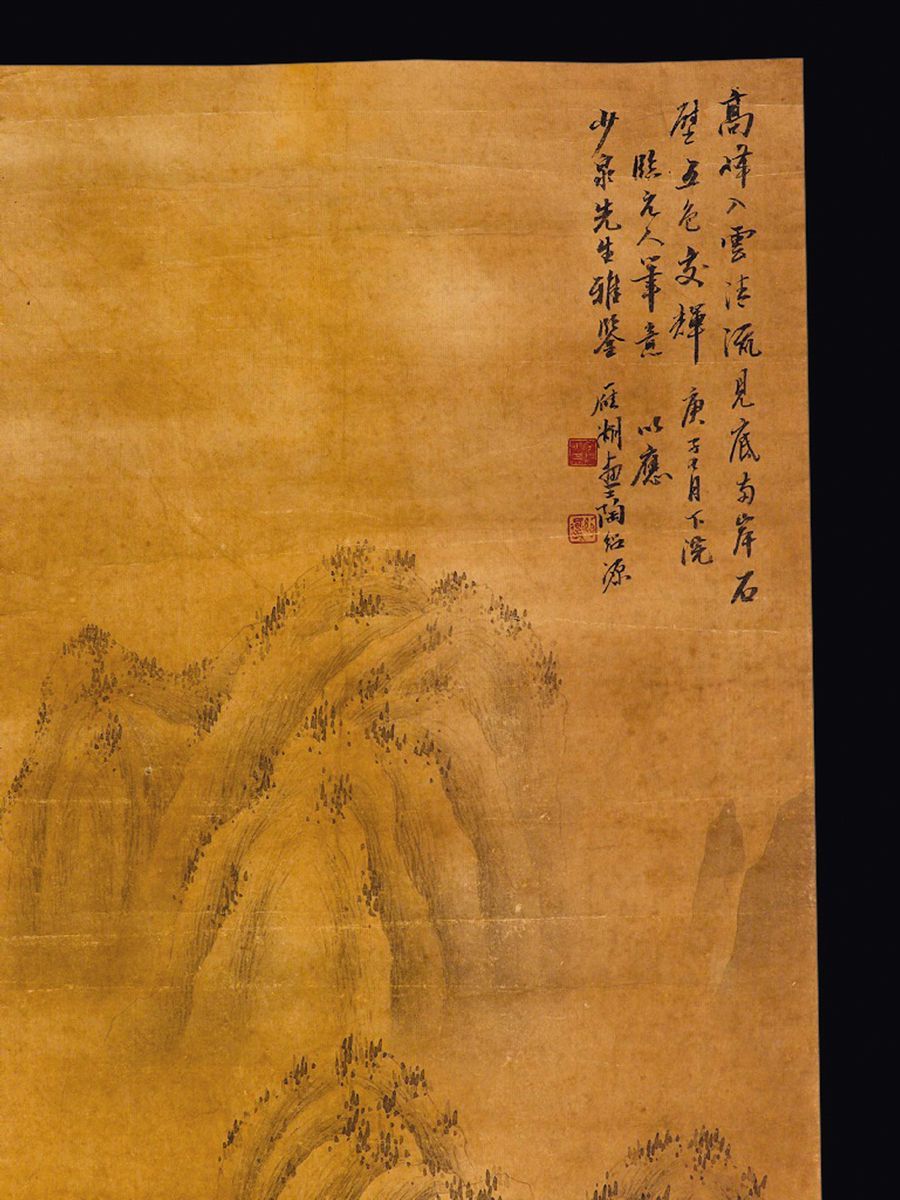 高峰入雲清流見底兩岸石
壁五色交輝 庚子月下浣
臨元人筆意 以應
少泉先生雅鑒 雁湖畫士陶紹源